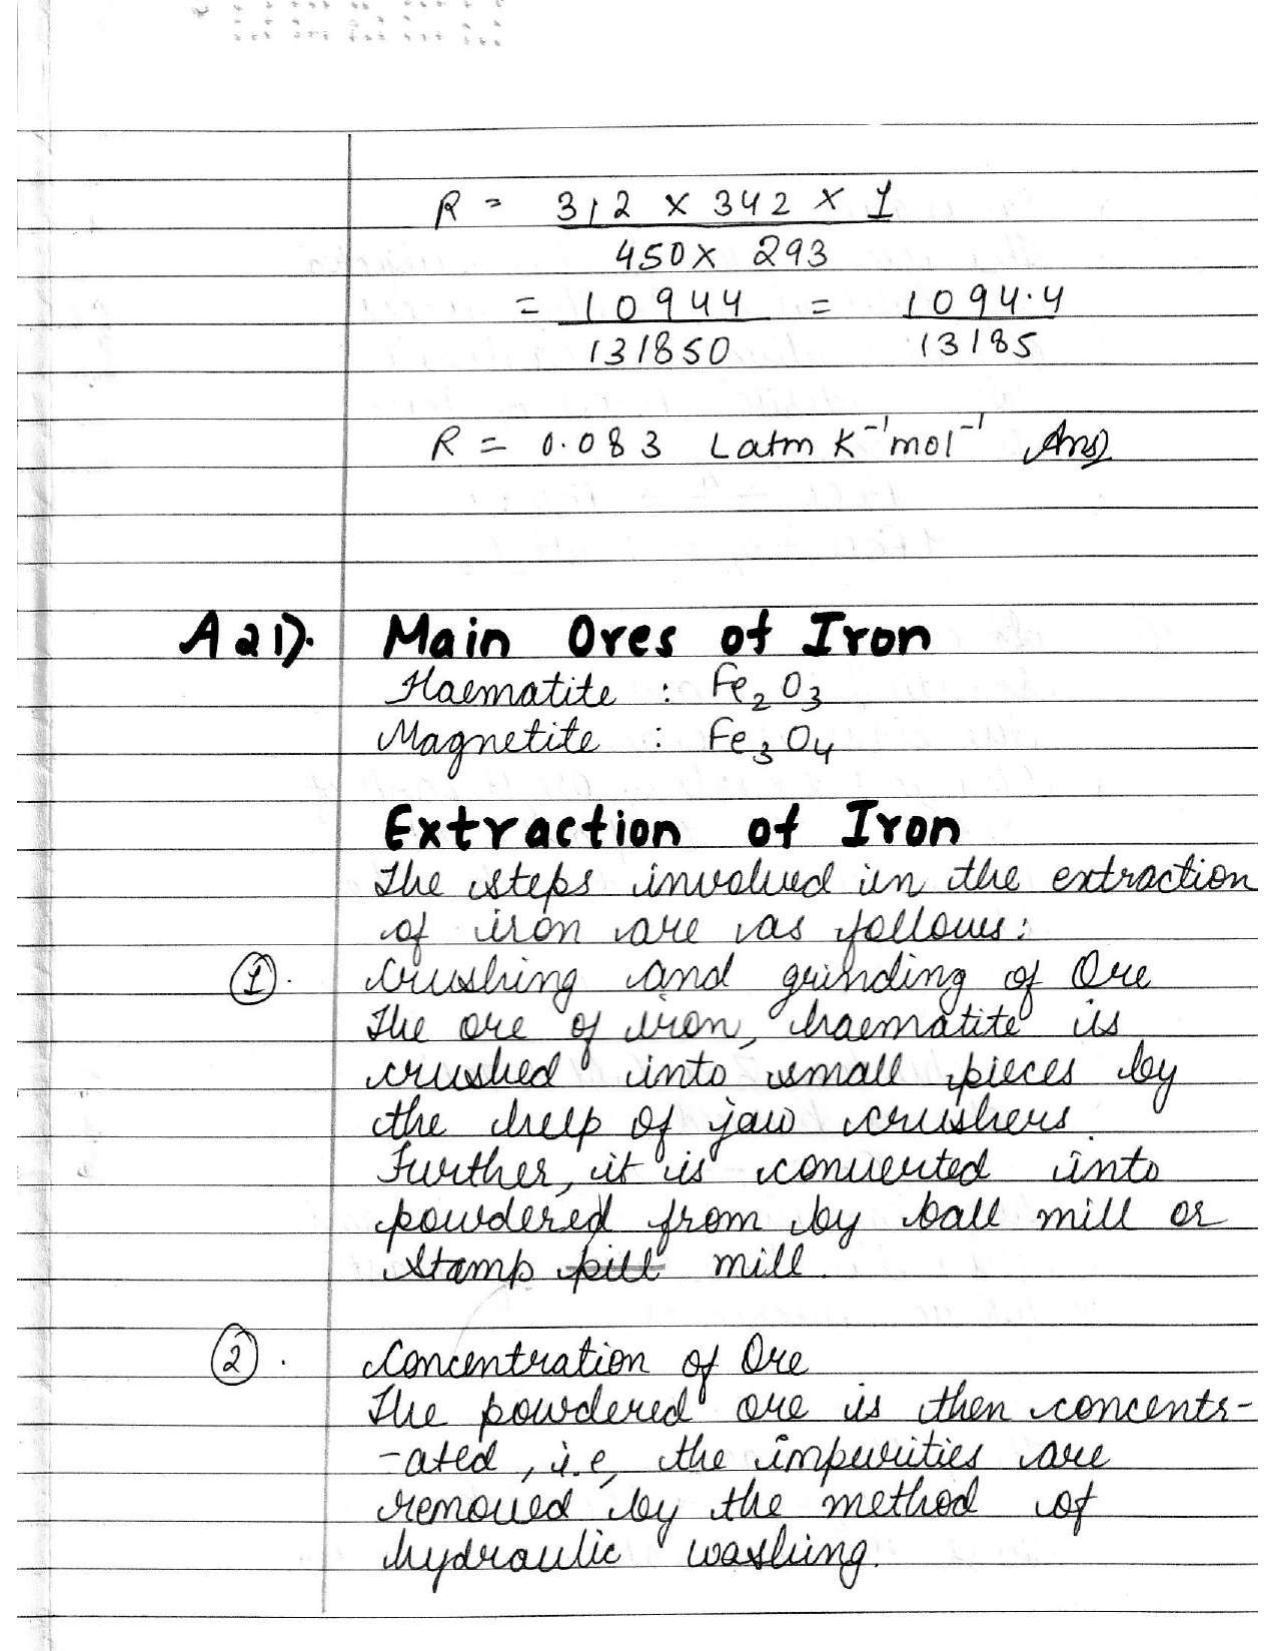 R = 312 × 342 × 1
450 × 293
= 10944 = 1094.4
131850 13185
R = 0.083 L atm K⁻¹ mol⁻¹ Ans
A 21). Main Ores of Iron
Haematite : Fe₂O₃
Magnetite : Fe₃O₄
Extraction of Iron
The steps involved in the extraction
of iron are as follows:
① . Crushing and grinding of Ore
The ore of iron, haematite is
crushed into small pieces by
the help of jaw crushers.
Further, it is converted into
powdered from by ball mill or
stamp pill mill.
② . Concentration of Ore
The powdered ore is then concentr-
-ated, i.e, the impurities are
removed by the method of
hydraulic washing.